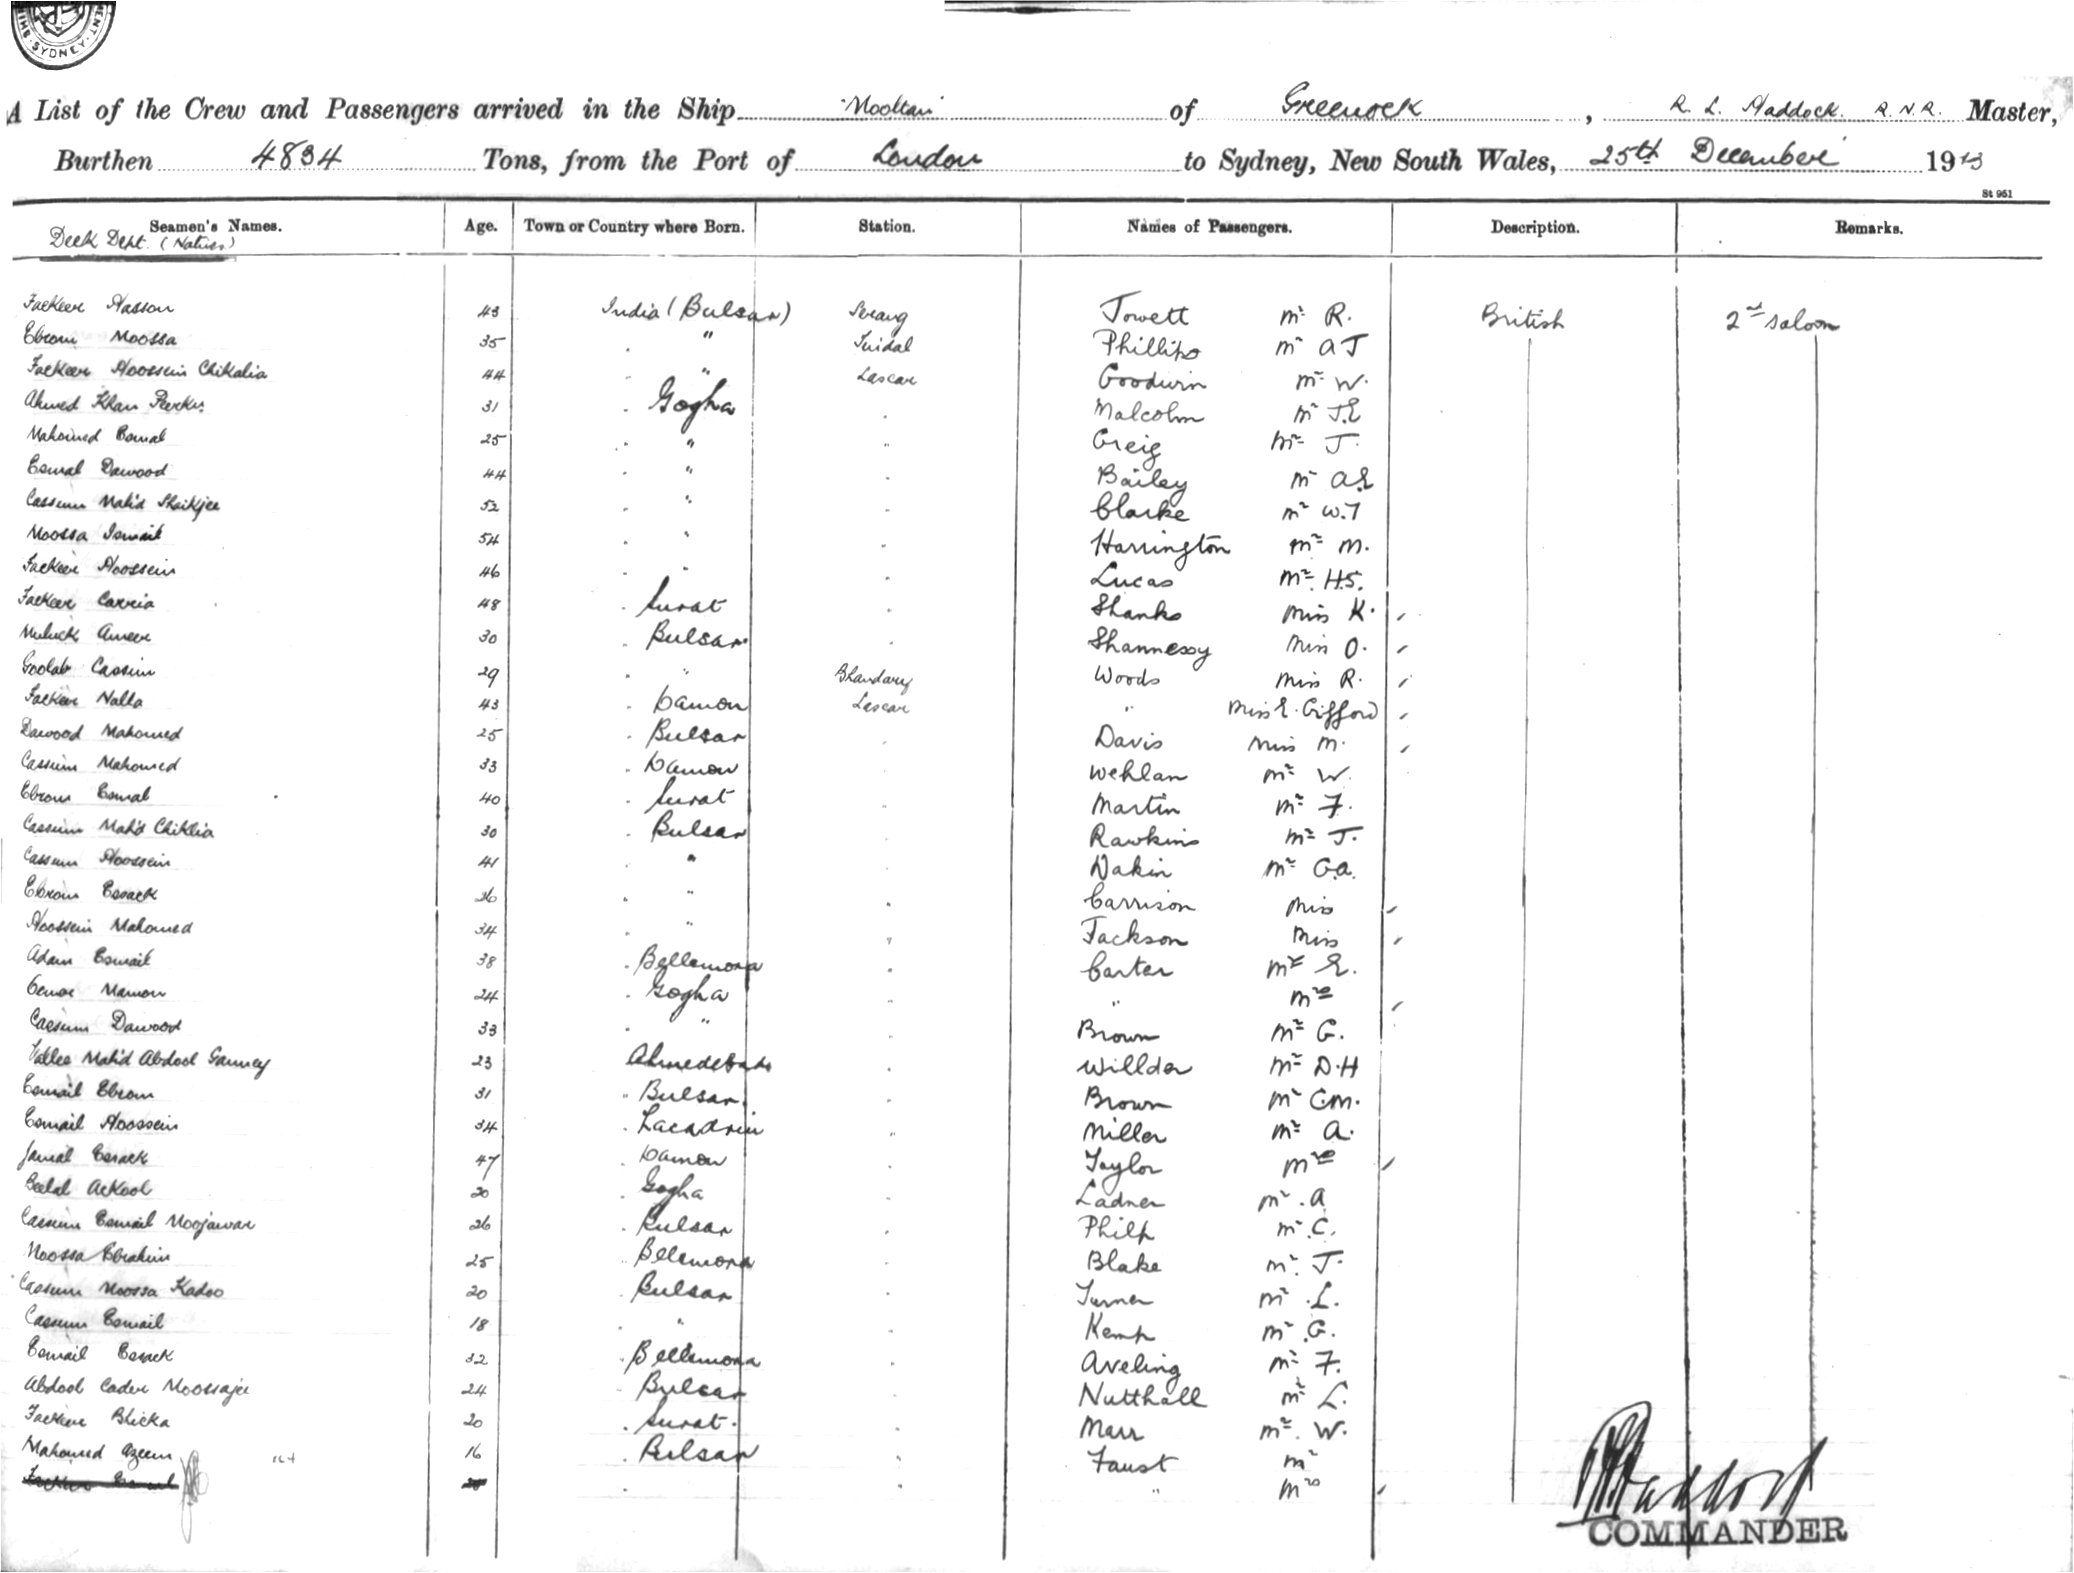 SYDNEY
A List of the Crew and Passengers arrived in the Ship "Mooltan" of Greenock, R. L. Haddock. R.N.R. Master,
Burthen 4834 Tons, from the Port of London to Sydney, New South Wales, 25th December 1913
St 951
Seamen's Names. Age. Town or Country where Born. Station. Names of Passengers. Description. Remarks.
Deck Dept. (Natives)
Fackeer Hasson 43 India (Bulsar) Serang Jowett Mr R. British 2nd saloon
Ebrom Moossa 35 " Tindal Phillips Mr A J
Fackeer Hoossein Chikalia 44 " Lascar Goodwin Mr W.
Ahmed Khan 31 Gogha Malcolm Mr J.E
Mahomed Esmal 25 " " Greig Mr J.
Esmal Dawood 44 " Bailey Mr A.E
Cassum Mah'd Shaikjee 52 " Clarke Mr W.T
Moossa Ismail 54 " Harrington Mr M.
Fackeer Hoossein 46 " Lucas Mr H.S.
Fackeer Carria 48 Surat Shanks Miss K.
Muluck Ameer 30 Bulsar Shannessy Miss O.
Goolab Cassim 29 " Bhandary Woods Miss R.
Fackeer Nalla 43 Damon Lascar " Miss E. Gifford
Dawood Mahomed 25 Bulsar Davis Miss M.
Cassum Mahomed 33 Damon Wehlan Mr W.
Ebrom Esmal 40 Surat Martin Mr F.
Cassum Mah'd Chiklia 30 Bulsar Rawkins Mr J.
Cassum Hoossein 41 " Dakin Mr G.A.
Ebrom Essack 26 " Garrison Miss
Hoossein Mahomed 34 " Jackson Miss
Adam Esmail 38 Bellemora Carter Mr E.
Mamon 24 Gogha " Mrs
Cassum Dawood 33 " Brown Mr G.
Vallee Mah'd Abdool Ganney 23 Ahmedebad Willder Mr D.H
Esmail Ebrom 31 Bulsar Brown Mr C.M.
Esmail Hoossein 34 Lacadriu Miller Mr A.
Jamal Essack 47 Damon Taylor Mrs
Beelal Ackool 20 Gogha Ladner Mr A
Cassum Esmail Moojawar 26 Bulsar Philp Mr C.
Moossa Ebrahim 25 Bellemora Blake Mr J.
Cassum Moossa Kadoo 20 Bulsar Turner Mr L.
Cassum Esmail 18 " Kemp Mr G.
Esmail Essack 32 Bellemora Aveling Mr F.
Abdool Cader Moossajee 24 Bulsar Nutthall Mr L.
Fackeer Bhicka 20 Surat. Marr Mr W.
Mahomed Azeem 16 Bulsar Faust Mr
" Mrs
Haddock
COMMANDER